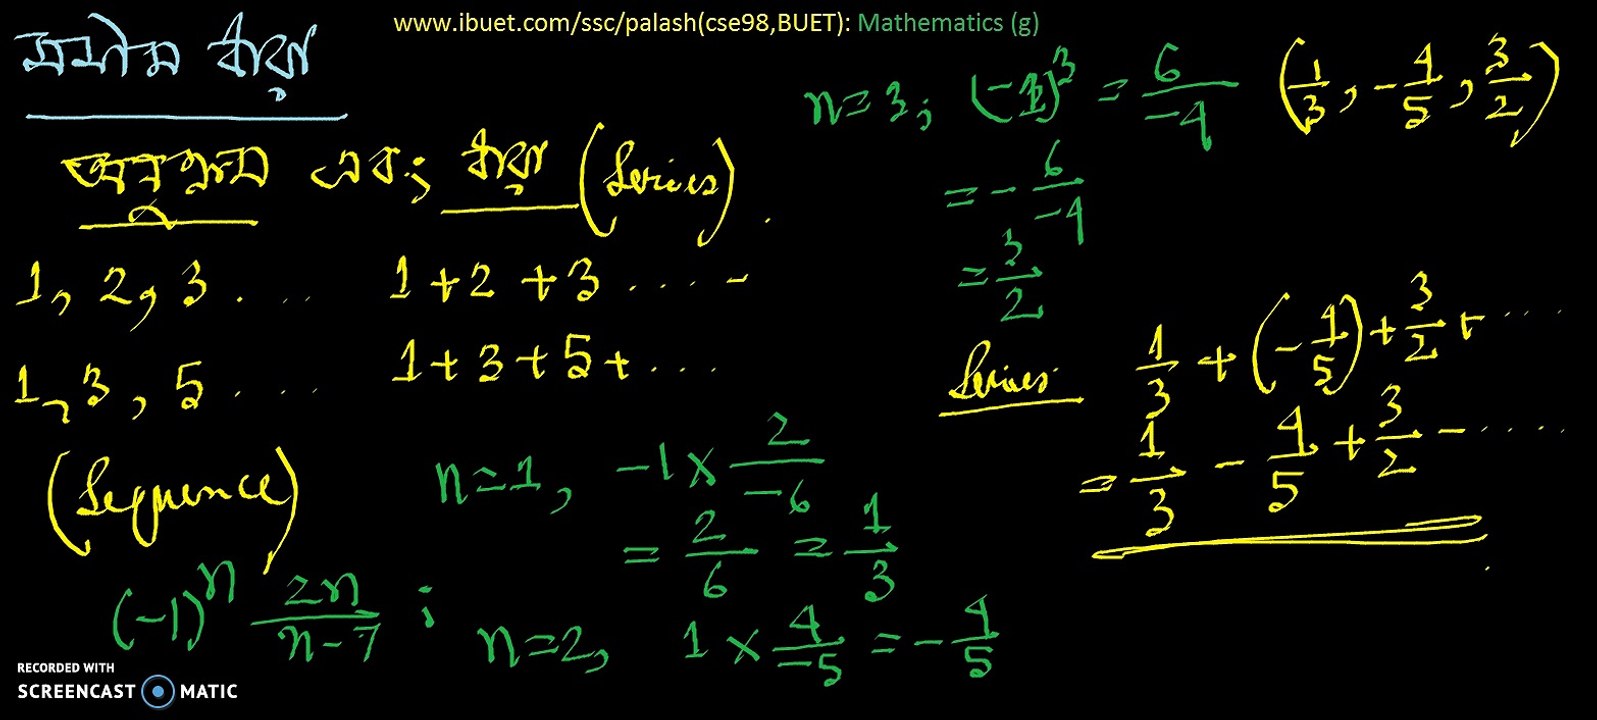 www.ibuet.com/ssc/palash(cse98,BUET): Mathematics (g)
সসীম ধারা
অনুক্রম এবং ধারা (Series)
1, 2, 3 . ... 1+2+3 .... -
1, 3, 5 .... 1+3+5+....
(Sequence)
(-1)^n 2n/(n-7) ;
n=1, -1 × 2/-6
= 2/6 = 1/3
n=2, 1 × 4/-5 = -4/5
n=3; (-1)^3 = 6/-4 (1/3, -4/5, 3/2)
= - 6/-4
= 3/2
Series 1/3 + (-4/5) + 3/2 + ....
= 1/3 - 4/5 + 3/2 - .....
RECORDED WITH
SCREENCAST MATIC